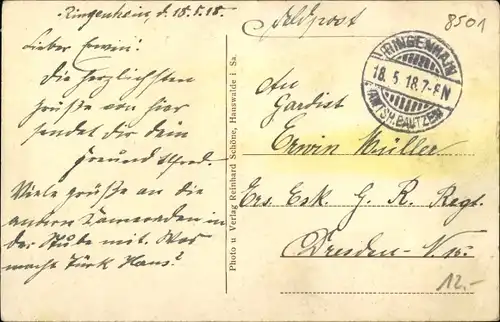 Ringenhain, d. 18.5.18.
Lieber Erwin!
Die herzlichsten
Grüße von hier
sendet dir dein
Freund Alfred.
Viele Grüße an die
andern Kameraden in
der Stube mit. Was
macht Türk Hans?
Photo u Verlag Reinhard Schöne, Hauswalde i Sa.
Feldpost
8501
RINGENHAIN
18.5.18.7-8N
(AMTSH. BAUTZEN)
An
Gardist
Erwin Müller
Ers. Esk. G. R. Regt.
Dresden-N. 15.
12.-